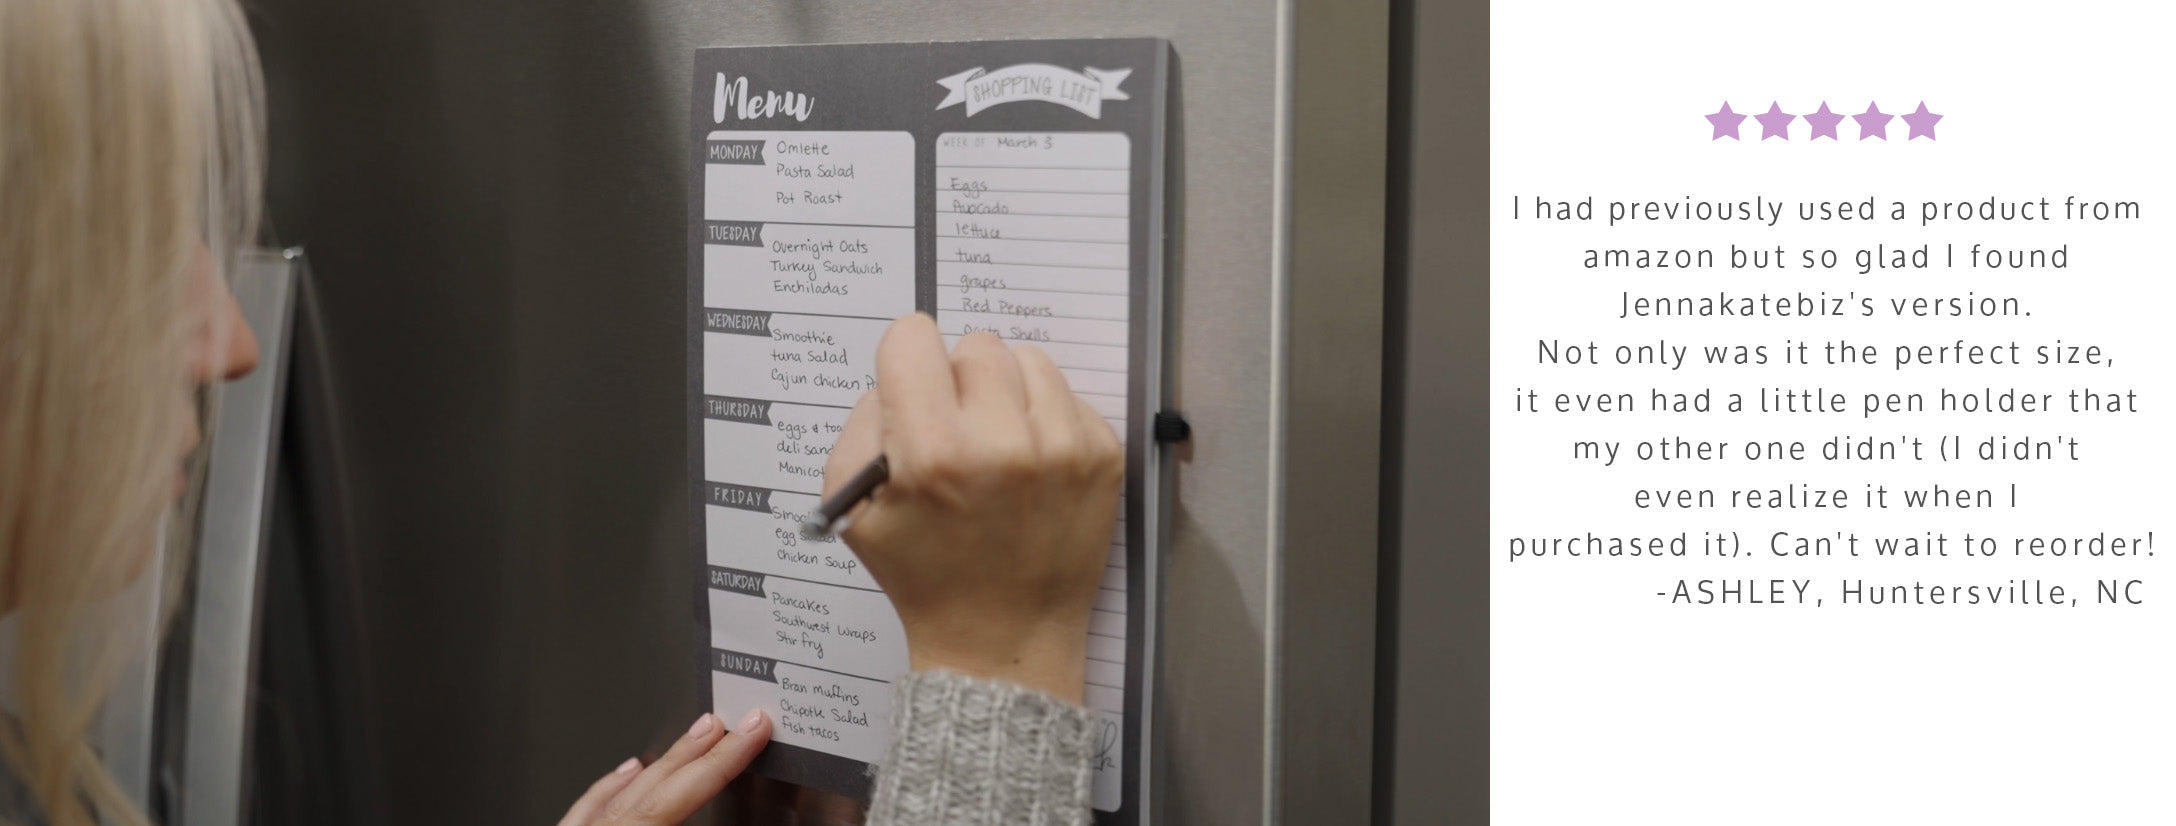 Menu
MONDAY
Omlette
Pasta Salad
Pot Roast
TUESDAY
Overnight Oats
Turkey Sandwich
Enchiladas
WEDNESDAY
Smoothie
tuna Salad
Cajun chicken
THURSDAY
eggs &
deli
FRIDAY
egg Salad
Chicken Soup
SATURDAY
Pancakes
Southwest Wraps
Stir fry
SUNDAY
Bran muffins
Chipotle Salad
Fish tacos
SHOPPING LIST
WEEK OF March 3
Eggs
Avocado
lettuce
tuna
grapes
Red Peppers
Pasta Shells
I had previously used a product from
amazon but so glad I found
Jennakatebiz's version.
Not only was it the perfect size,
it even had a little pen holder that
my other one didn't (I didn't
even realize it when I
purchased it). Can't wait to reorder!
-ASHLEY, Huntersville, NC